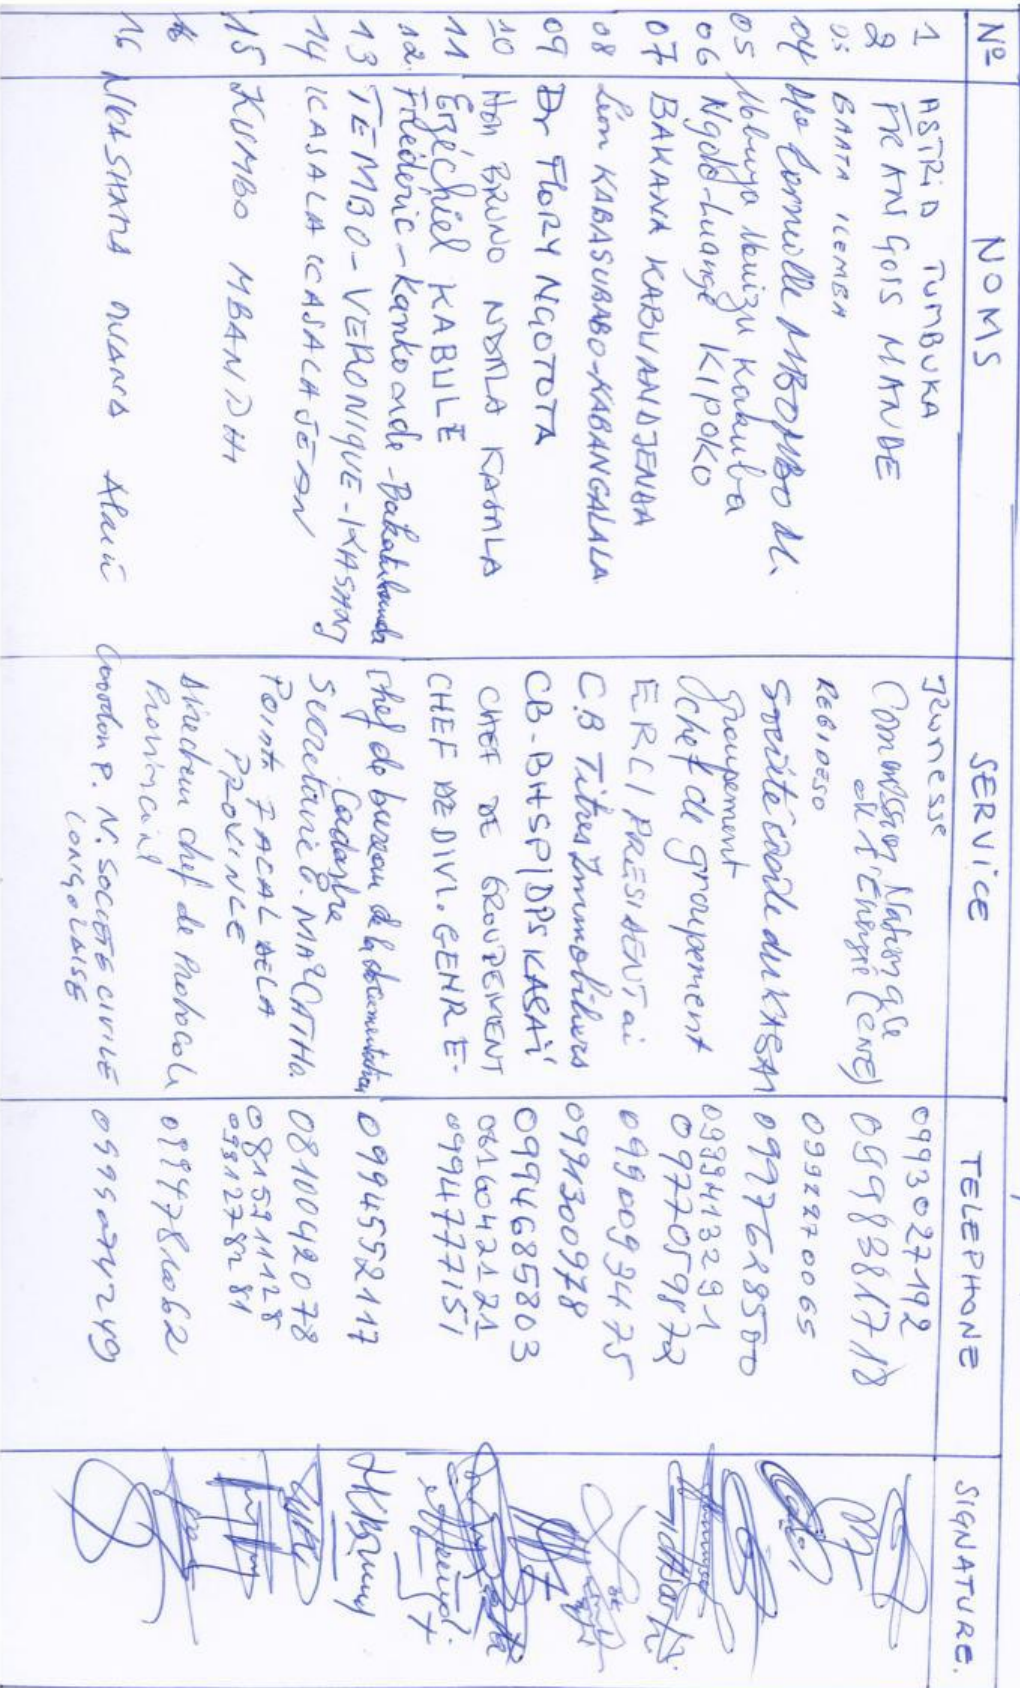 N° NOMS SERVICE TELEPHONE SIGNATURE.
1 ASTRID TUMBUKA Jeunesse 0993027192
2 FRANÇOIS MANDE Commission Nationale de l'Energie (CNE) 09983881718
03 BAATA ILEMBA REGIDESO 0992270065
04 MBOMBO M. Société civile du KASAI 0997628500
05 Kakuba groupement 0999413291
06 Ngolo-Luange KIPOKO chef de groupement 0977059872
07 BAKANA KABUANDJENAA ERCI PRESIDENT ai 0990093475
08 Léon KABASUBABO-KABANGALALA C.B Titres Immobiliers 0991300978
09 Dr FLORY NGOTOTA CB-BHSP/DPS KASAÏ 0994685803
10 Hon BRUNO NDALA KASALA CHEF DE GROUPEMENT 0816042121
11 Ezéchiel KABULE CHEF DE DIVI. GENRE- 0994777151
12. Fréderic-Kankonde-Bakatubanda chef de bureau de la documentation Cadastre 0994552117
13 TEMBO-VERONIQUE-KASHAY Secretaire 0810042078
14 KASALA KASALA JEAN Point FACAL DE LA PROVINCE 0815911128
0991278281
15 KUMBO MBANDHI Directeur chef de Protocole Provincial 0994781062
16
16 NKASHAMA Coordon P. N. SOCIETE CIVILE CONGOLAISE